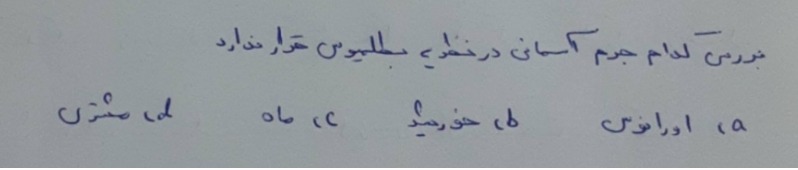 بررسی کدام جرم آسمانی در نظریه بطلمیوس قرار ندارد
a، اورانوس b، خورشید c، ماه d، مشتری